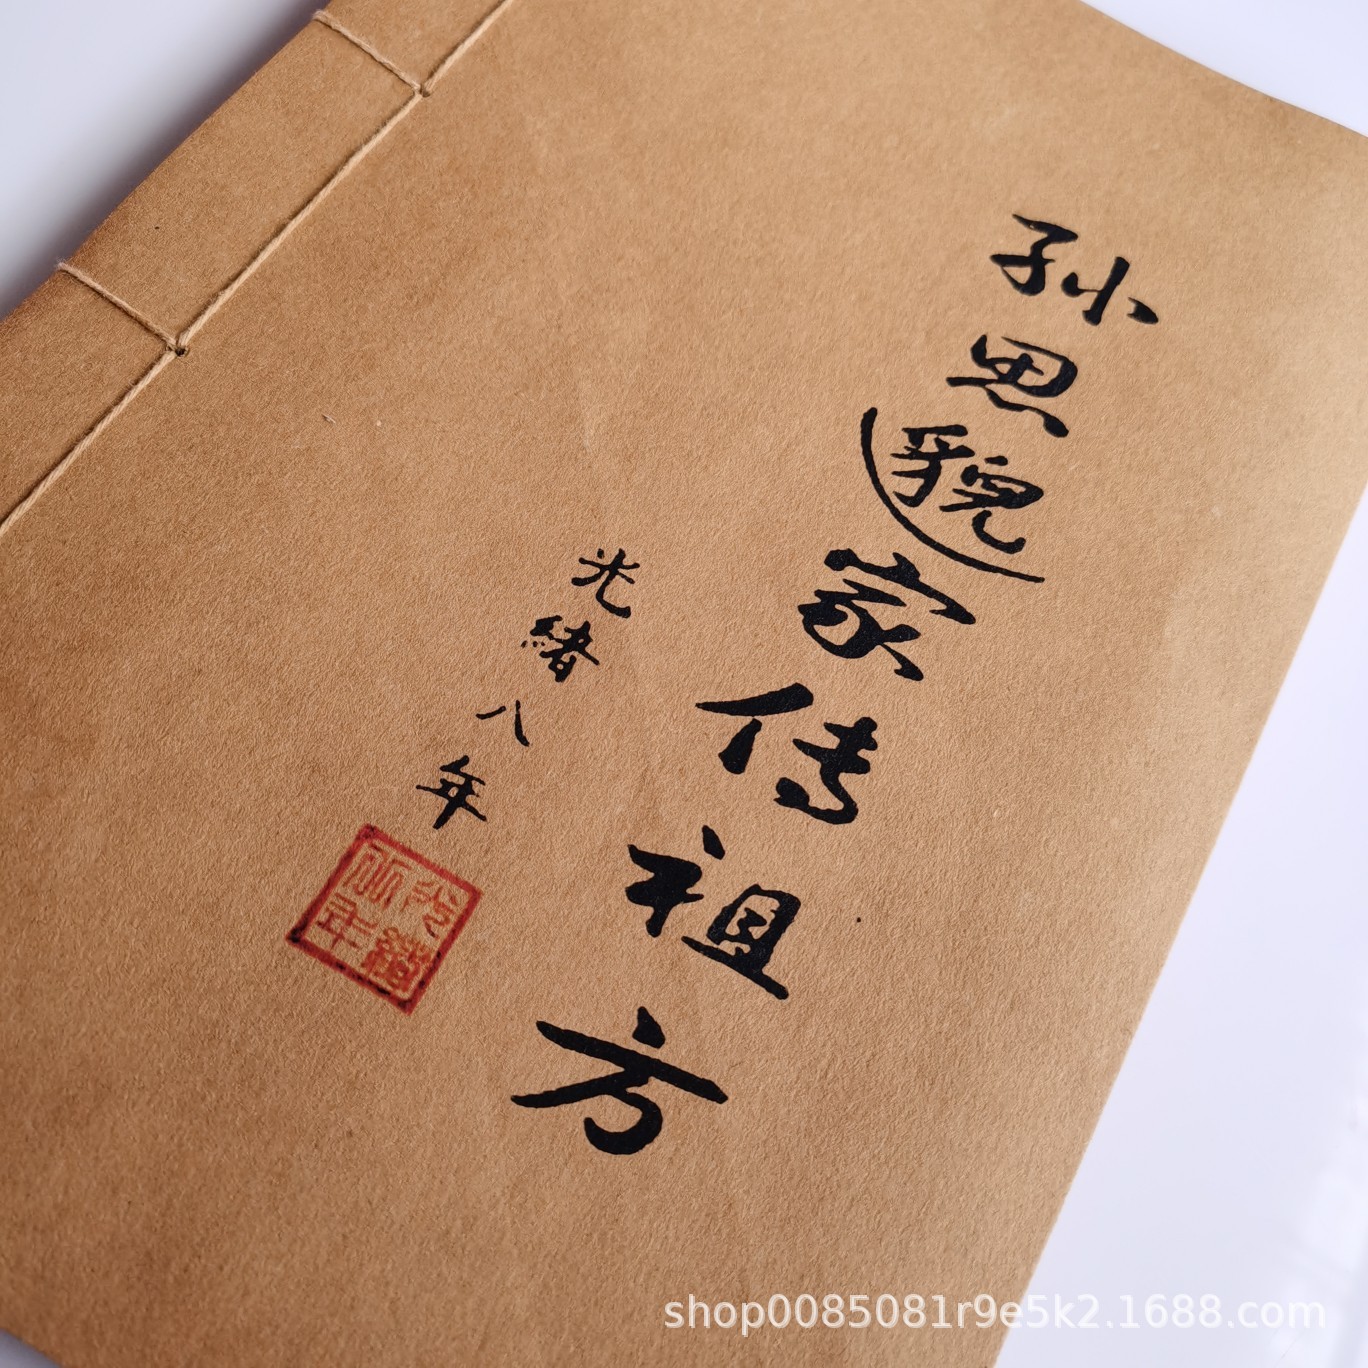 孙思邈家传祖方
光緒八年
光緒
年
shop0085081r9e5k2.1688.com